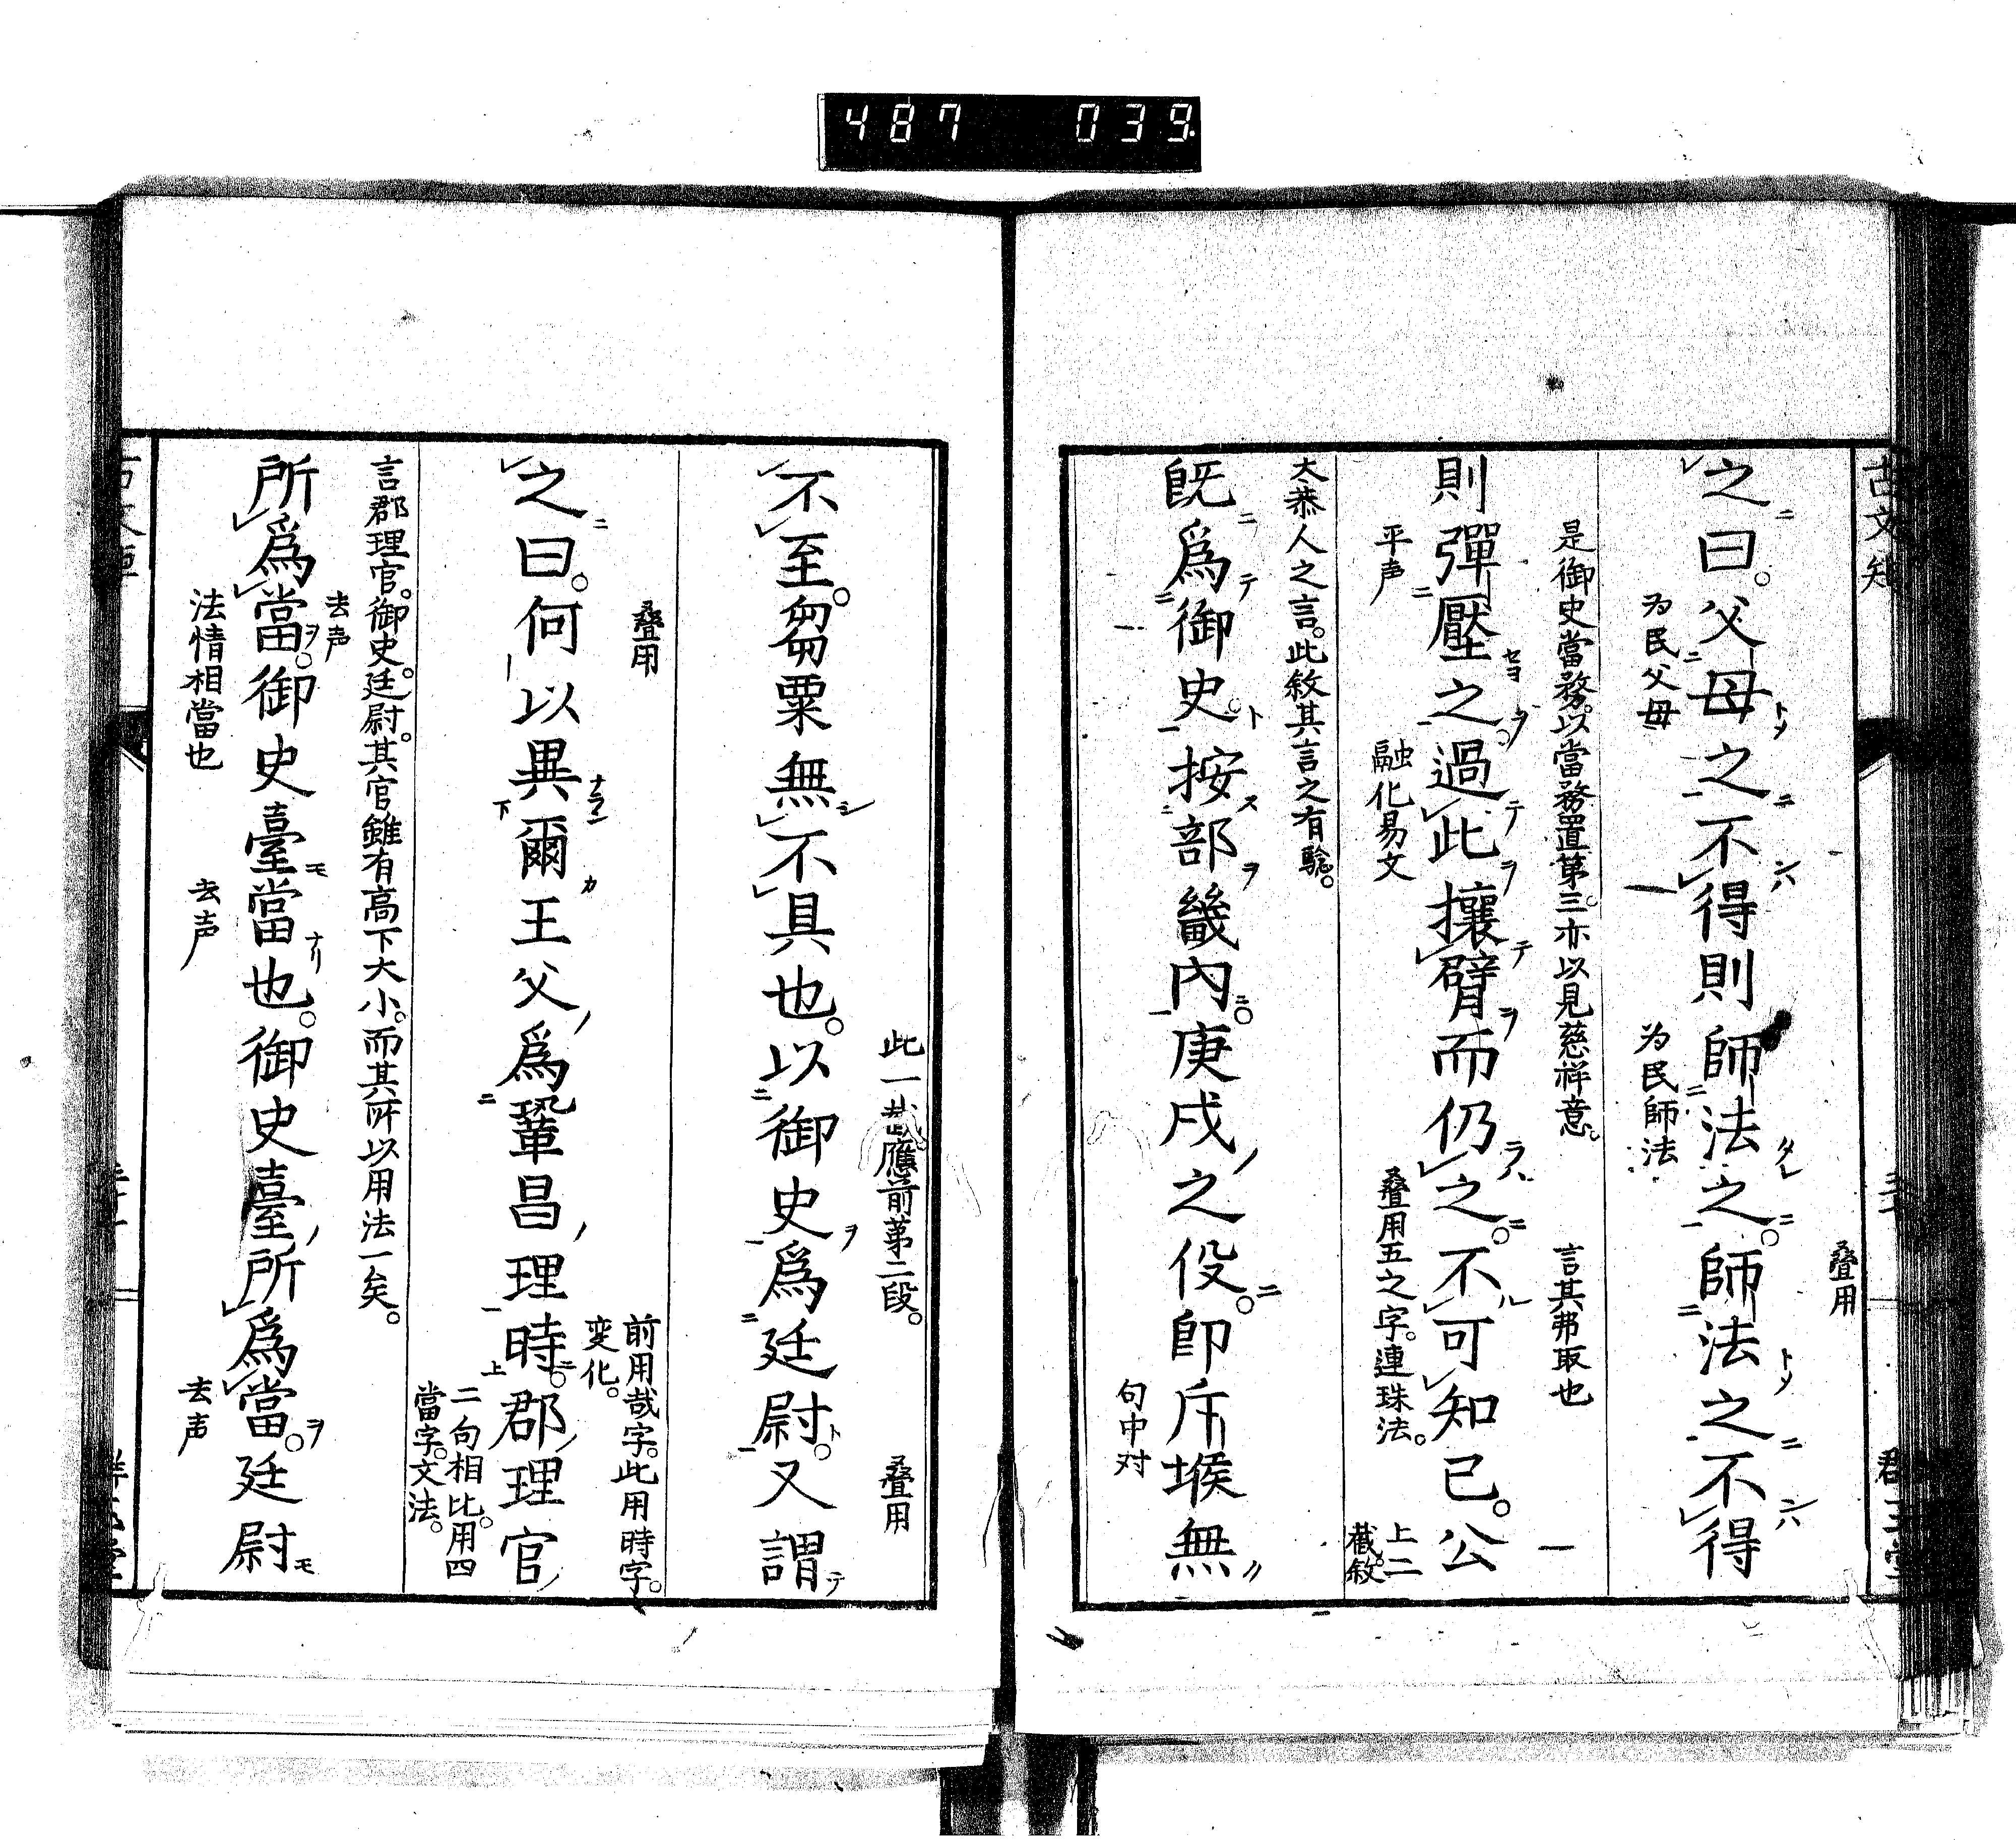 487 039
叠用
之曰。父母之不得則師法之。師法之不得
為民父母
為民師法
是御史當務。以當務置第三。亦以見慈祥意。
言其弗取也
則彈壓之。過此攘臂而仍之。不可知已。公
平声
融化易文
叠用五之字。連珠法。
上二截。敘
太恭人之言。此敘其言之有驗。
既爲御史。按部畿內。庚戌之役。卽斥堠無
句中对
此一截應前第二段。
叠用
不至。芻粟無不具也。以御史爲廷尉。又謂
叠用
前用哉字。此用時字。
変化。
之曰。何以異爾王父爲鞏昌理時。郡理官
二句相比。用四
當字。文法。
言郡理官。御史。廷尉。其官雖有高下大小。而其所以用法一矣。
去声
所爲當。御史臺當也。御史臺所爲當。廷尉
法情相當也
去声
去声